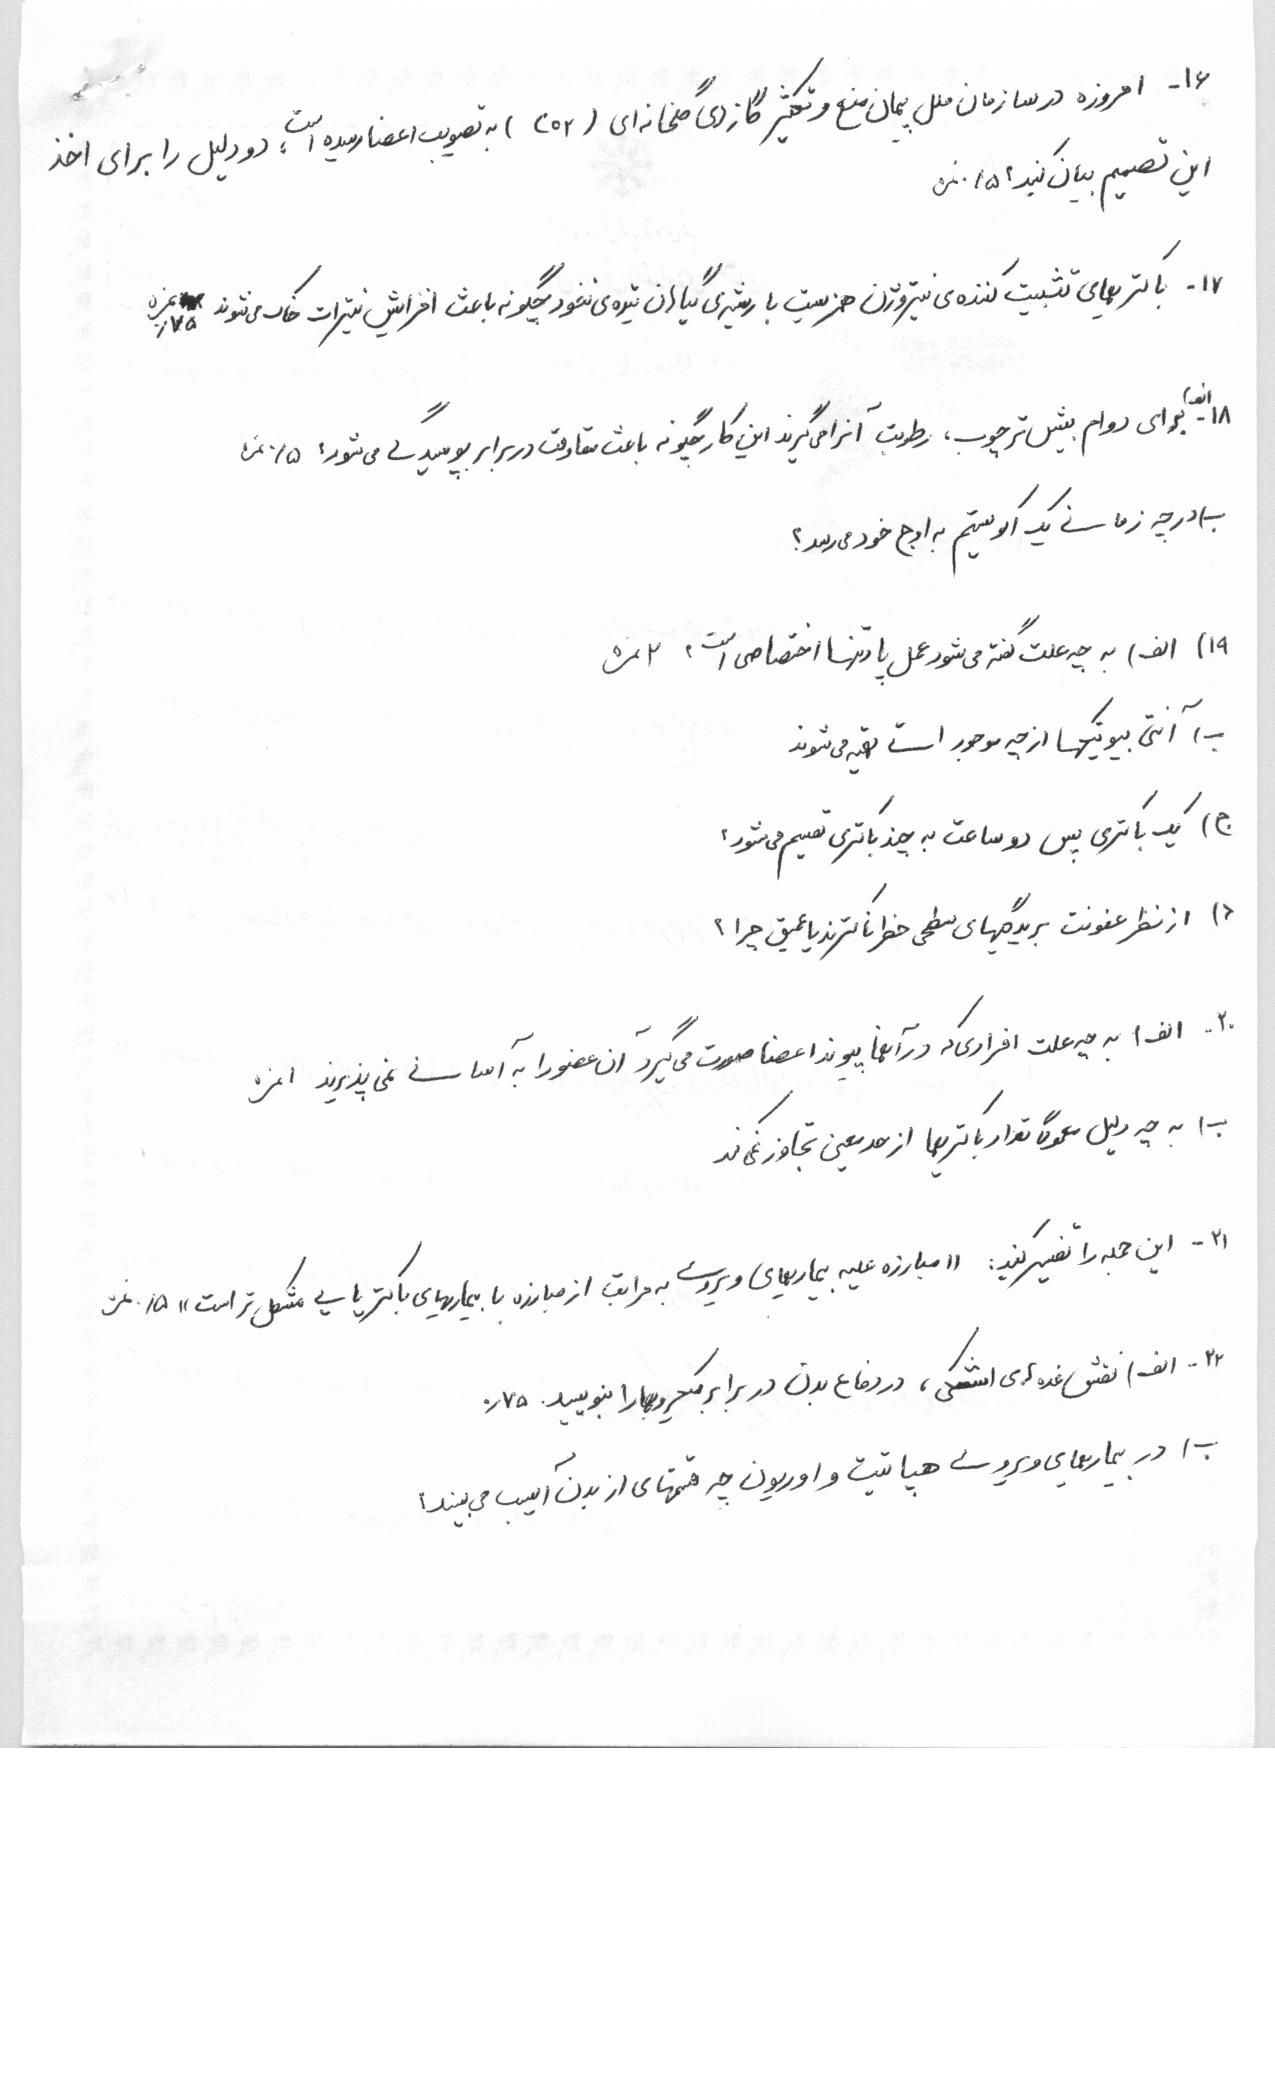 ۱۶- امروزه در سازمان ملل پیمان منع و تکثیر گازهای گلخانه‌ای (co۲) به تصویب اعضا رسیده است؛ دو دلیل را برای اخذ
این تصمیم بیان کنید؟ ۰/۵ نمره
۱۷- باکتریهای تثبیت کننده‌ی نیتروژن همزیست با ریشه‌ی گیاهان تیره‌ی نخود چگونه باعث افزایش نیترات خاک می‌شوند ۰/۷۵ نمره
۱۸- الف) برای دوام بیش‌تر چوب، رطوبت آنرا می‌گیرند این کار چگونه باعث مقاومت در برابر پوسیدگی می‌شود؟ ۰/۵ نمره
ب) در چه زمانی یک اکوسیستم به اوج خود می‌رسد؟
۱۹) الف) به چه علت گفته می‌شود عمل پادتنها اختصاصی است؟ ۲ نمره
ب) آنتی بیوتیکها از چه موجوداتی تهیه می‌شوند
ج) یک باکتری پس دو ساعت به چند باکتری تقسیم می‌شود؟
د) از نظر عفونت بریدگیهای سطحی خطرناکترند یا عمیق چرا؟
۲۰- الف) به چه علت افرادی که در آنها پیوند اعضا صورت می‌گیرد آن عضو را به آسانی نمی‌پذیرند ۱ نمره
ب) به چه دلیل معمولاً تعداد باکتریها از حد معینی تجاوز نمی‌کند
۲۱- این جمله را تفسیر کنید: «مبارزه علیه بیماریهای ویروسی به مراتب از مبارزه با بیماریهای باکتریایی مشکل تر است» ۰/۵ نمره
۲۲- الف) نقش غده‌های اشکی، در دفاع بدن در برابر میکروبها را بنویسید. ۰/۷۵
ب) در بیماریهای ویروسی هپاتیت و اوریون چه قسمتهای از بدن آسیب می‌بیند؟